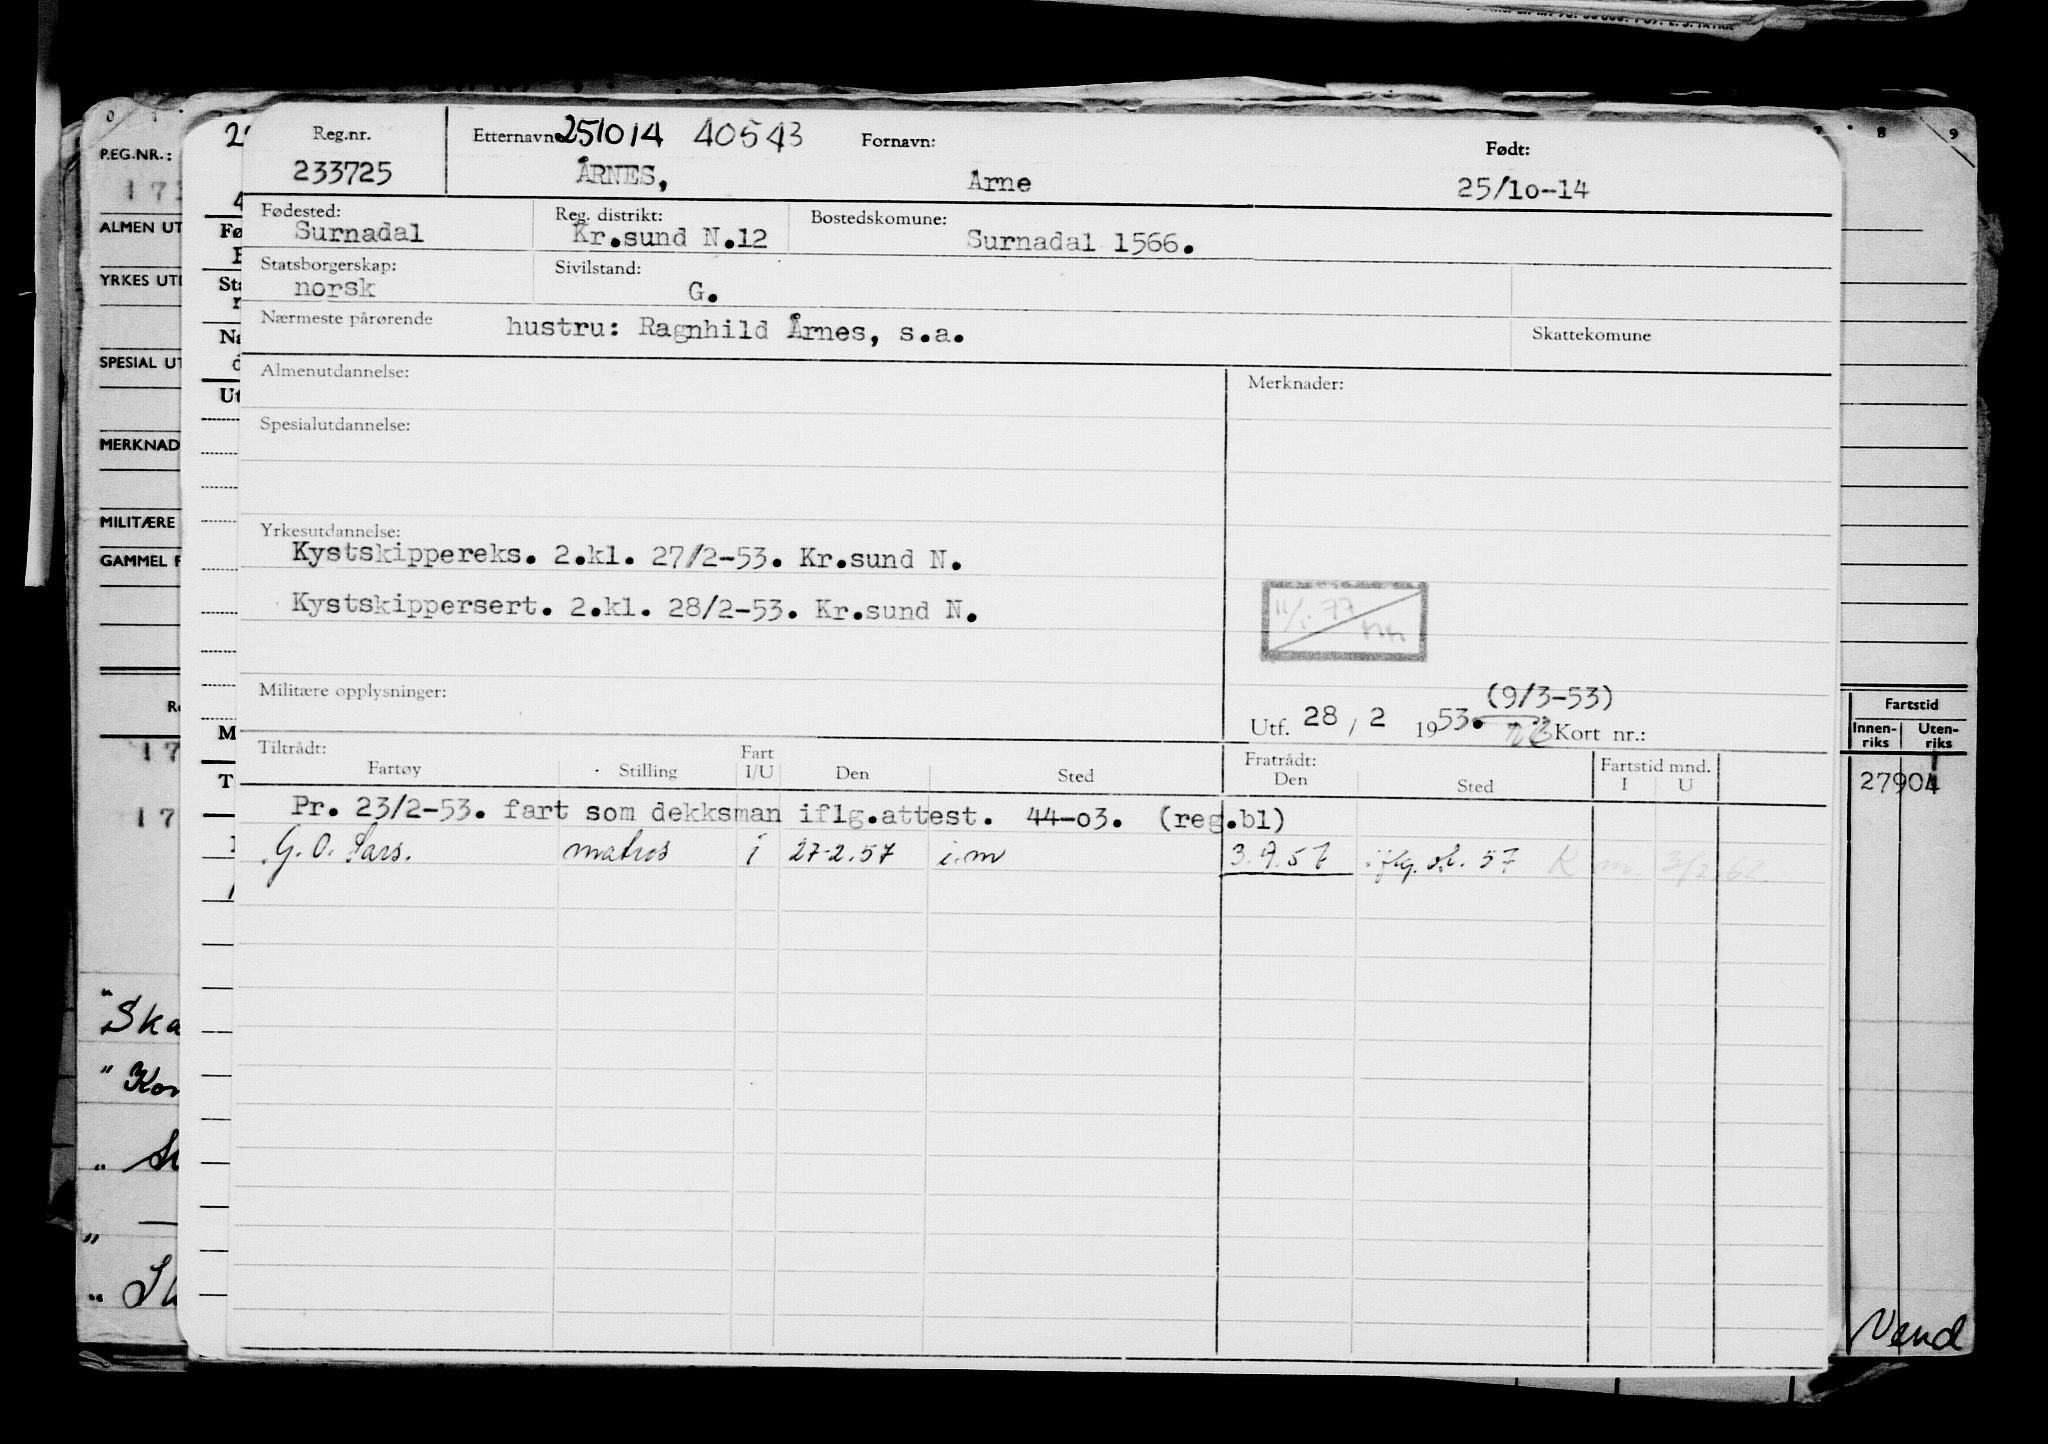 Reg.nr. Etternavn: 251014 40543 Fornavn: Født:
233725 ÅRNES, Arne 25/10-14
Fødested: Reg. distrikt: Bostedskomune:
Surnadal Kr.sund N.12 Surnadal 1566.
Statsborgerskap: Sivilstand:
norsk G.
Nærmeste pårørende hustru: Ragnhild Årnes, s.a. Skattekomune
Almenutdannelse: Merknader:
Spesialutdannelse:
Yrkesutdannelse:
Kystskippereks. 2.kl. 27/2-53. Kr.sund N.
Kystskippersert. 2.kl. 28/2-53. Kr.sund N.
11/1-77
Militære opplysninger:
(9/3-53)
Utf. 28 / 2 1953. Kort nr.:
Tiltrådt: Fart Fratrådt: Fartstid mnd.
Fartøy Stilling I/U Den Sted Den Sted I U
Pr. 23/2-53. fart som dekksman iflg.attest. 44-03. (reg.bl)
G. O. Sars. matros i 27-2.57 i.m 3.9.57 iflg. 57
P.EG.NR.:
ALMEN UT
YRKES UTD
SPESIAL UT
MERKNAD
MILITÆRE
GAMMEL F
8 9
Fartstid
Innen-riks Uten-riks
27904
"Ska
" Kor
Vend